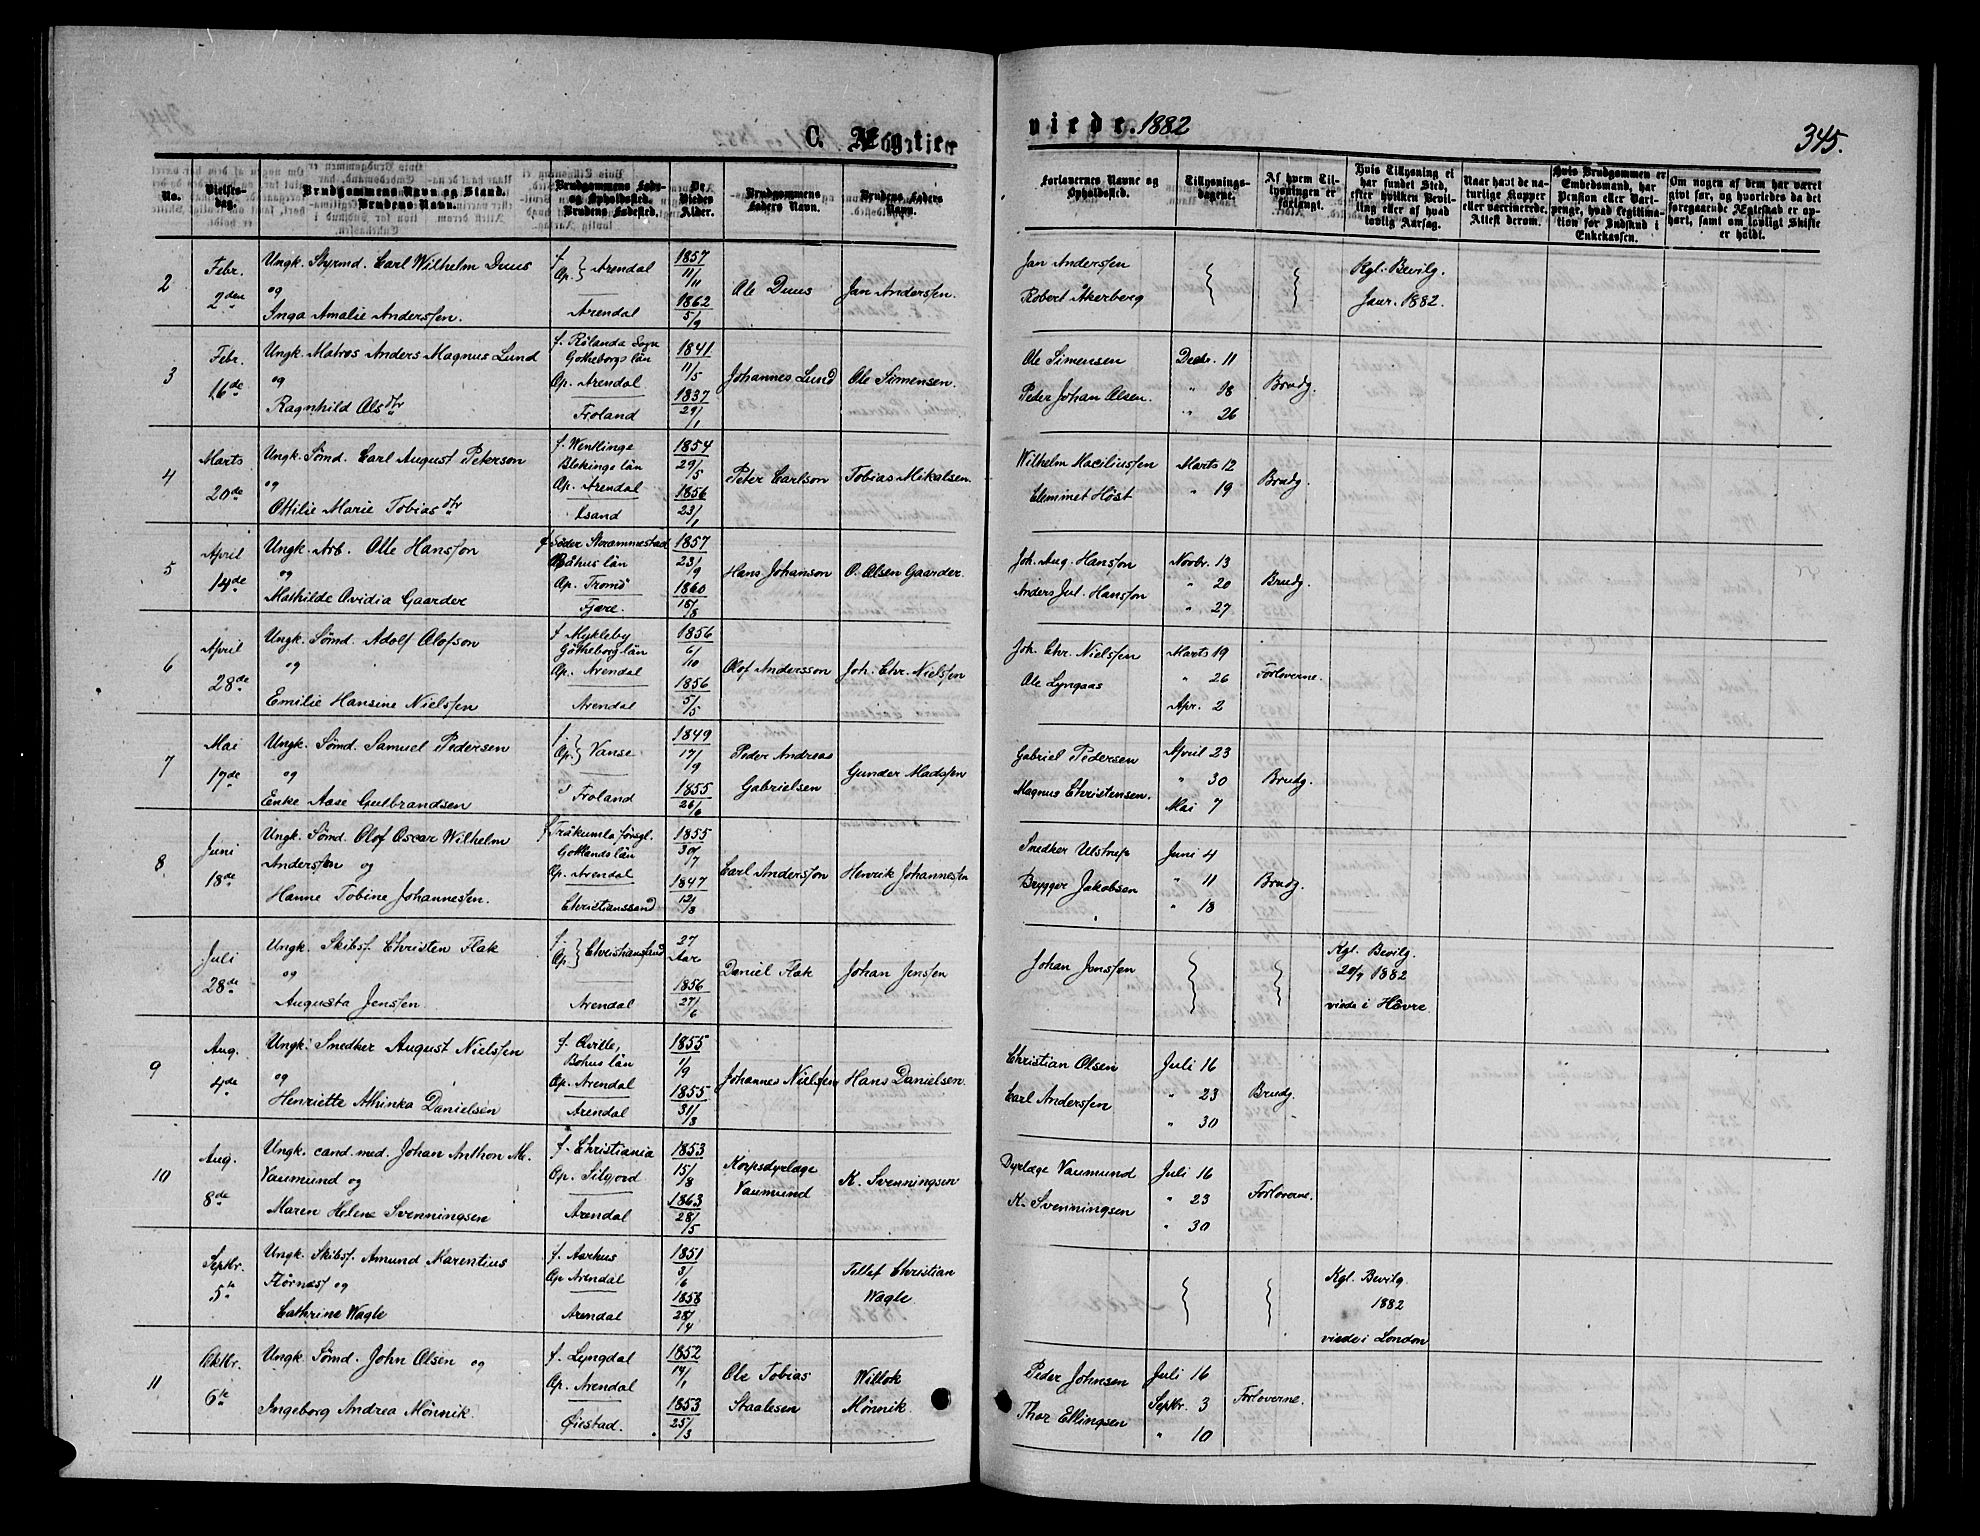 C. Ægtevi
viede. 1882
345.
No.
Vielses-dag.
Brudgommens Navn og Stand.
Brudens Navn.
Brudgommens Føde- og Opholdssted.
Brudens Fødested.
De Viedes Alder.
Brudgommens Faders Navn.
Brudens Faders Navn.
Forlovernes Navne og Opholdssted.
Tillysnings-dagene.
Af hvem Tillysningen er forlangt.
Hvis Tillysning ei har fundet Sted, efter hvilken Bevilling eller af hvad lovlig Aarsag.
Naar havt de naturlige Kopper eller vaccinerede. Attest derom.
Hvis Brudgommen er Embedsmand, har Pension eller Vartpenge, hvad Legitimation for Indskud i Enkekassen.
Om nogen af dem har været givt før, og hvorledes da det foregaaende Ægteskab er ophørt, samt om lovligt Skifte er holdt.
2
Febr. 2den
Ungk. Styrmd. Carl Wilhelm Duus
og
Inga Amalie Anderssen.
f. Op. } Arendal
Arendal
1857 11/11
1862 5/9
Ole Duus
Jan Anderssen.
Jan Anderssen
Robert Åkerberg
Kgl. Bevilg.
Jaur. 1882.
3
Febr. 16de
Ungk. Matros Anders Magnus Lund
og
Ragnhild Olsdtr
f. Rölanda Sogn
Gotheborgs län
Op. Arendal
Froland
1841 11/5
1837 29/1
Johannes Lund
Ole Simensen.
Ole Simensen
Peder Johan Olsen.
Decbr. 11
" 18
" 26
Brudg.
4
Marts 20de
Ungk. Sömd. Carl August Peterson
og
Ottilie Marie Tobiasdtr
f. Wentlinge
Blekinge län
Op. Arendal
Lsand
1854 29/5
1856 23/1
Peter Carlson
Tobias Mikalsen.
Wilhelm Maciliussen
Clemmet Höst
Marts 12
" 19
Brudg.
5
April 14de
Ungk. Arb. Olle Hansson
og
Mathilde Ovidia Gaarder
f Söder Strømmestad
Båhus län
Op. Tromö
Fjære.
1857 23/9
1860 18/8
Hans Johanson
O. Olsen Gaarder.
Joh. Aug. Hansson
Anders Jul. Hansson
Novbr. 13
" 20
" 27
Brudg.
6
April 28de
Ungk. Sömd. Adolf Olofson
og
Emilie Hansine Nielssen
f Mykleby
Gotheborg län
Op. Arendal
Arendal
1856 6/10
1856 5/5
Olof Andersson
Joh. Chr. Nielssen
Joh. Chr. Nielssen
Ole Lyngaas
Marts 19
" 26
Apr. 2
Forloverne.
7
Mai 17de
Ungk. Sömd. Samuel Pedersen
og
Enke Aase Gulbrandsen
f. Op. } Vanse
Froland
1849 17/9
1855 26/6
Peder Andreas
Gabrielsen
Gunder Madssen
Gabriel Pedersen
Magnus Christensen.
April 23
" 30
Mai 7
Brudg.
8
Juni 18de
Ungk. Sömd. Olof Oscar Wilhelm
Anderssen og
Hanne Tobine Johannessen.
f Träkumla försgl.
Gottlands län
Op. Arendal
Christianssand
1855 30/7
1847 12/8
Carl Andersson
Henrik Johannessen
Snedker Ulstrup
Brygger Jakobsen
Juni 4
" 11
" 18
Brudg.
Juli 28de
Ungk. Skibsf. Christen Flak
og
Augusta Jenssen
f. Op. } Christianssand
Arendal
27 Aar
1856 27/6
Daniel Flak
Johan Jenssen
Johan Jenssen
Kgl. Bevilg.
20/7 1882
viede i Håvre.
9
Aug. 4de
Ungk. Snedker August Nielssen
og
Henriette Athinka Danielsen
f. Qville,
Bohus län
Op. Arendal
Arendal
1855 1/9
1855 31/3
Johannes Nielssen
Hans Danielsen.
Christian Olsen
Carl Anderssen
Juli 16
" 23
" 30
Brudg.
10
Aug. 8de
Ungk. cand. med. Johan Anthon M.
Vaumund og
Maren Helene Svenningsen
f. Christiania
Op. Silgjord
Arendal
1853 15/8
1863 28/5
Korpsdyrlæge
Vaumund
K. Svenningsen
Dyrlæge Vaumund
K. Svenningsen
Juli 16
" 23
" 30
Forloverne.
Septbr. 5te
Ungk. Skibsf. Amund Marentius
Flörnæs og
Cathrine Wagle
f. Aarhus
Op Arendal
Arendal
1851 3/6
1858
Tellef Christian
Wagle
Kgl. Bevilg.
1882
viede i London
11
Oktbr. 6te
Ungk. Sömd. John Olsen og
Ingeborg Andrea Mönnik.
f. Lyngdal
Op. Arendal
Øiestad.
1852 14/1
1853 25/3
Ole Tobias
Staalesen
Willok
Mönnik.
Peder Johnsen
Thor Ellingsen
Juli 16
Septbr. 3
" 10
Forloverne.